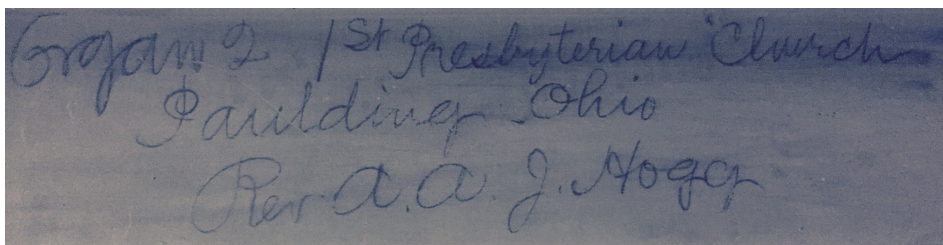 Organ 2 1st Presbyterian Church
Paulding Ohio
Rev. A. A. J. Hogg